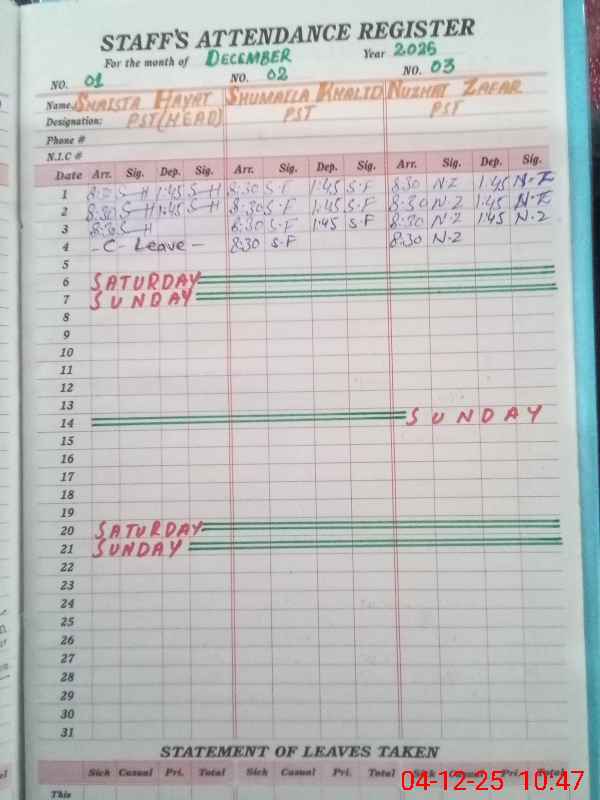 STAFF'S ATTENDANCE REGISTER
For the month of DECEMBER Year 2025
NO. 01 NO. 02 NO. 03
Name. SHAISTA HAYAT SHUMAILA KHALID NUZHAT ZAFAR
Designation: PST(HEAD) PST PST
Phone #
N.I.C #
Date Arr. Sig. Dep. Sig. Arr. Sig. Dep. Sig. Arr. Sig. Dep. Sig.
1 8:30 S-H 1:45 S-H 8:30 S.F 1:45 S.F 8:30 N.Z 1:45 N.Z
2 8:30 S-H 1:45 S-H 8:30 S.F 1:45 S.F 8:30 N.Z 1:45 N.Z
3 8:30 S-H 8:30 S.F 1:45 S.F 8:30 N.Z 1:45 N.Z
4 -C- Leave - 8:30 S.F 8:30 N.Z
5
6 SATURDAY
7 SUNDAY
8
9
10
11
12
13
14 SUNDAY
15
16
17
18
19
20 SATURDAY
21 SUNDAY
22
23
24
25
26
27
28
29
30
31
STATEMENT OF LEAVES TAKEN
Sick Casual Pri. Total Sick Casual Pri. Total Sick Casual Pri. Total
This
04-12-25 10:47